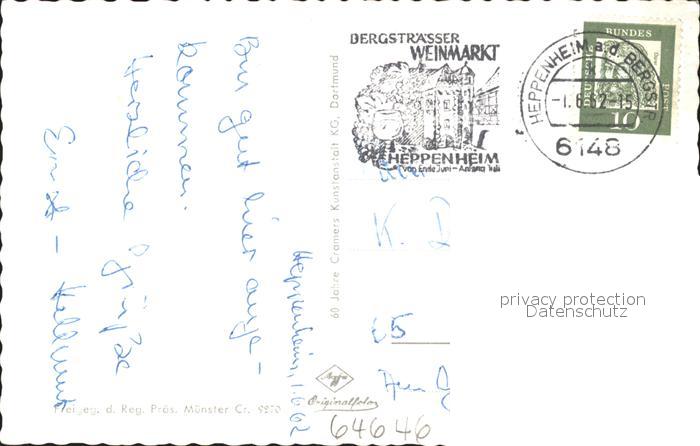 Heppenheim, 1.6.62
Bin gut hier ange-
kommen.
Herzliche Grüße
Ernst - Hellmut
Freigeg. d. Reg. Präs. Münster Cr. 9270
60 Jahre Cramers Kunstanstalt KG, Dortmund
Agfa
Originalfoto
64646
BERGSTRÄSSER
WEINMARKT
HEPPENHEIM
von Ende Juni - Anfang Juli
HEPPENHEIM a.d. BERGSTR
-1.6.62-15
6148
BUNDES
POST
DEUTSCHE
10
K. D
65
privacy protection
Datenschutz